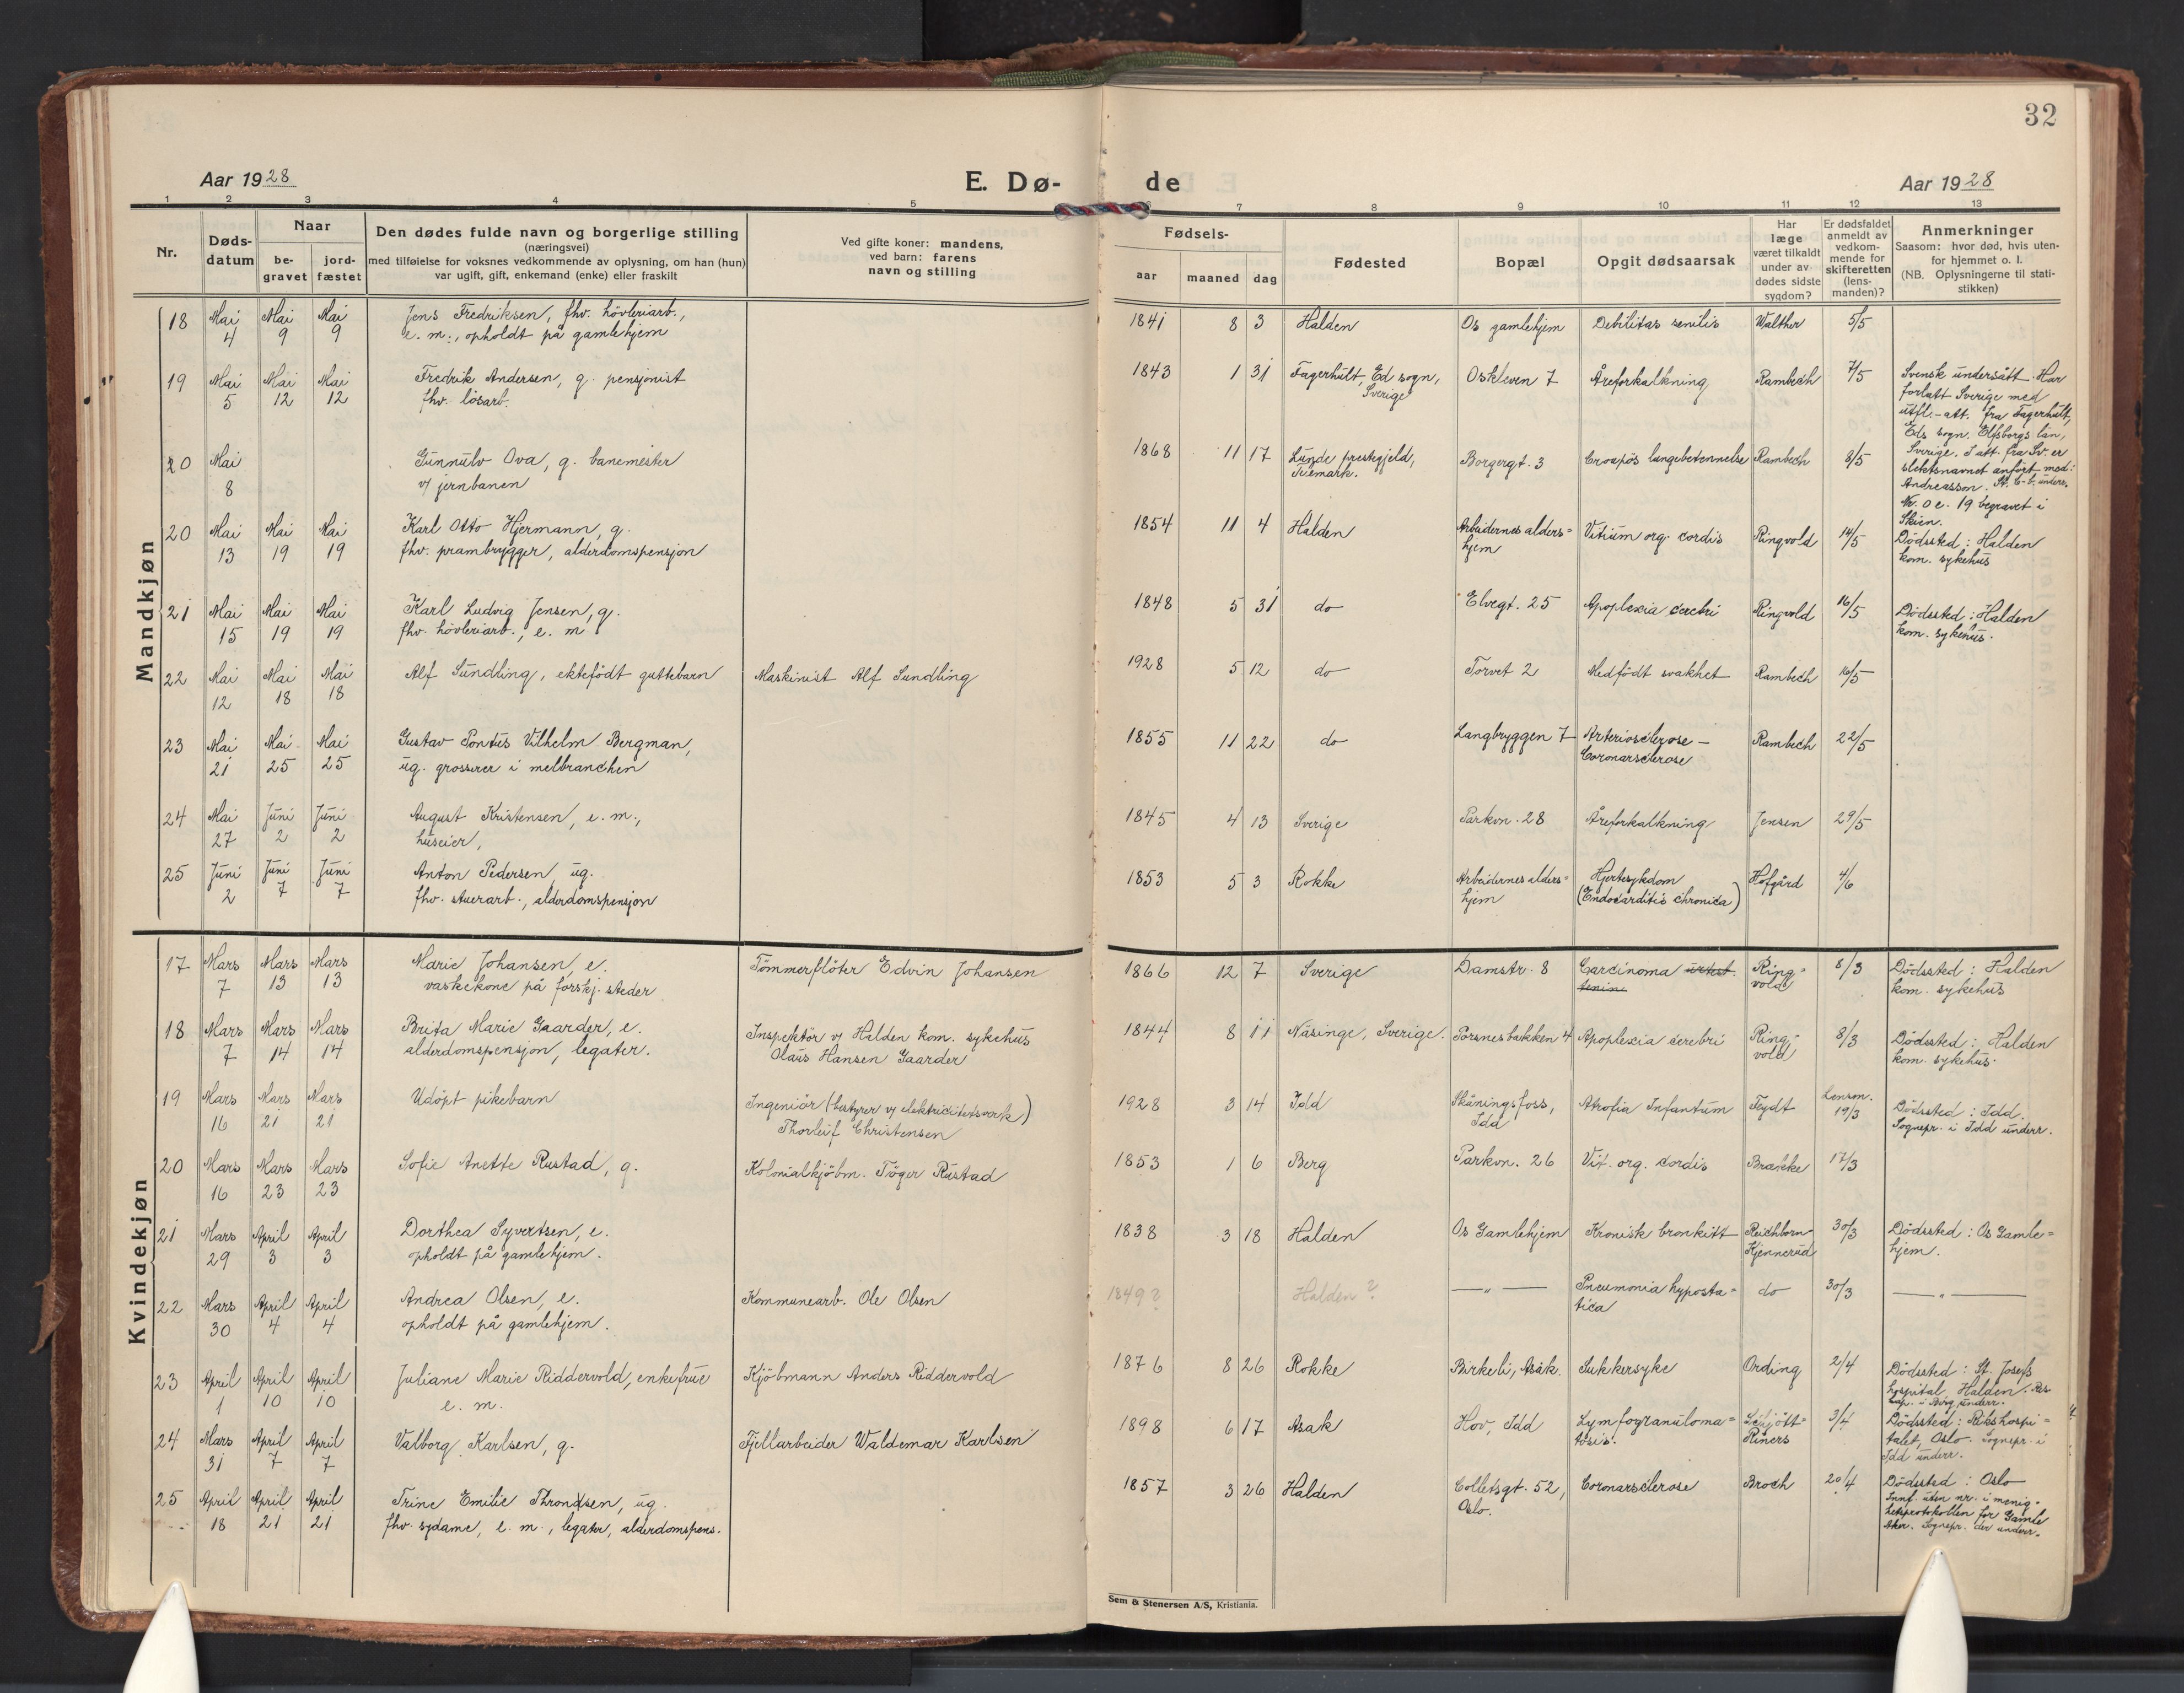 32
Aar 1928
E. Dø-
de
Aar 1928
1 2 3 4 5 6 7 8 9 10 11 12 13
Nr.
Døds-
datum
Naar
be-
gravet
jord-
fæstet
Den dødes fulde navn og borgerlige stilling
(næringsvei)
med tilføielse for voksnes vedkommende av oplysning, om han (hun)
var ugift, gift, enkemand (enke) eller fraskilt
Ved gifte koner: mandens,
ved barn: farens
navn og stilling
Fødsels-
aar maaned dag
Fødested
Bopæl
Opgit dødsaarsak
Har
læge
været tilkaldt
under av-
dødes sidste
sygdom?
Er dødsfaldet
anmeldt av
vedkom-
mende for
skifteretten
(lens-
manden)?
Anmerkninger
Saasom: hvor død, hvis uten-
for hjemmet o. l.
(NB. Oplysningerne til stati-
stikken)
Mandkjøn
18 Mai Mai Mai Jens Fredriksen, fhv. hövleriarb., 1841 8 3 Halden Os gamlehjem Debilitas senilis Walther 5/5
4 9 9 e. m., opholdt på gamlehjem
19 Mai Mai Mai Fredrik Andersen, g. pensjonist 1843 1 31 Fagerhult, Ed sogn, Oskleven 7 Åreforkalkning Rambech 7/5 Svensk undersått. Har
5 12 12 fhv. lösarb. Sverige forlatt Sverige med
utfl.-att. fra Fagerhult,
Eds sogn. Elfsborgs län,
20 Mai Gunnulv Ova, g. banemester 1868 11 17 Lunde prestegjeld, Borgergt. 3 Croupös lungebetennelse Rambech 8/5 Sverige. I att. fra Sv. er
8 v/ jernbanen Telemark. slektsnavnet anfört med:
Andreasson.
Nr. 0 e. 19 begravet i
Skien.
20 Mai Mai Mai Karl Otto Hjermann, g. 1854 11 4 Halden Arbeidernes alders= Vitium org. cordis Ringvold 14/5 Dödssted: Halden
13 19 19 fhv. prambrygger, alderdomspensjon hjem kom. sykehus
21 Mai Mai Mai Karl Ludvig Jensen, g. 1848 5 31 do Elvegt. 25 Apoplexia cerebri Ringvold 16/5 Dödssted: Halden
15 19 19 fhv. hövleriarb., e. m kom. sykehus.
22 Mai Mai Mai Alf Sundling, ektefödt guttebarn Maskinist Alf Sundling 1928 5 12 do Torvet 2 Medfödt svakhet Rambech 16/5
12 18 18
23 Mai Mai Mai Gustav Pontus Vilhelm Bergman, 1855 11 22 do Langbryggen 7 Arteriosclerose - Rambech 22/5
21 25 25 ug. grosserer i melbranchen Coronarsclerose
24 Mai Juni Juni August Kristensen, e. m., 1845 4 13 Sverige Parkvn. 28 Åreforkalkning Jensen 29/5
27 2 2 huseier,
25 Juni Juni Juni Anton Pedersen, ug. 1853 5 3 Rokke Arbeidernes alders= Hjertesykdom Hofgård 4/6
2 7 7 fhv. stuerarb., alderdomspensjon hjem (Endocarditis chronica)
Kvindekjøn
17 Mars Mars Mars Marie Johansen, e. Tömmerflöter Edvin Johansen 1866 12 7 Sverige Damstr. 8 Carcinoma Ring= 8/3 Dödssted: Halden
7 13 13 vaskekone på forskj. steder vold kom. sykehus
18 Mars Mars Mars Brita Marie Gaarder, e. Inspektör v/ Halden kom. sykehus 1844 8 11 Näsinge, Sverige. Porsnesbakken 4 Apoplexia cerebri Ring- 8/3 Dödssted: Halden
7 14 14 alderdomspensjon, legater. Olaus Hansen Gaarder vold kom. sykehus.
19 Mars Mars Mars Udöpt pikebarn Ingeniör (bestyrer v/ elektricitetsverk) 1928 3 14 Idd Skåningsfoss, Atrofia Infantum Feydt Lensm. Dödssted: Idd.
16 21 21 Thorleif Christensen Idd 19/3 Sognepr. i Idd underr.
20 Mars Mars Mars Sofie Anette Rustad, g. Kolonialkjöbm. Tröger Rustad 1853 1 6 Berg Parkvn. 26 Vit. org. cordis Brække 17/3
16 23 23
21 Mars April April Dorthea Syvertsen, e. 1838 3 18 Halden Os Gamlehjem Kronisk bronkitt Reichborn- 30/3 Dödssted: Os Gamle=
29 3 3 opholdt på gamlehjem. Kjennerud hjem.
22 Mars April April Andrea Olsen, e. Kommunearb. Ole Olsen 1849? Halden? — " — Pneumonia hyposta= do 30/3 — " —
30 4 4 opholdt på gamlehjem. tica
23 April April April Juliane Marie Riddervold, enkefrue Kjöbmann Anders Riddervold 1876 8 26 Rokke Birkeli, Asak. Sukkersyke Ording 2/4 Dödssted: St. Josefs
1 10 10 e. m. hospital, Halden. Res.
kap. i Berg underr.
24 Mars April April Valborg Karlsen, g. Fjellarbeider Waldemar Karlsen 1898 6 17 Asak Hov, Idd Lymfogranuloma= Schjött= 3/4 Dödssted: Rikshospi=
31 7 7 tosis. Riners talet, Oslo. Sognepr. i
Idd underr.
25 April April April Trine Emilie Throndsen, ug. 1857 3 26 Halden Colletsgt. 52, Coronarsclerose Broch 20/4 Dödssted: Oslo
18 21 21 fhv. sydame, e. m., legater, alderdomspens. Oslo. Innf. uten nr. i menig=
hetsprotokollen for Gamle
Aker. Sognepr. der underr.
Sem & Stenersen A/S, Kristiania.